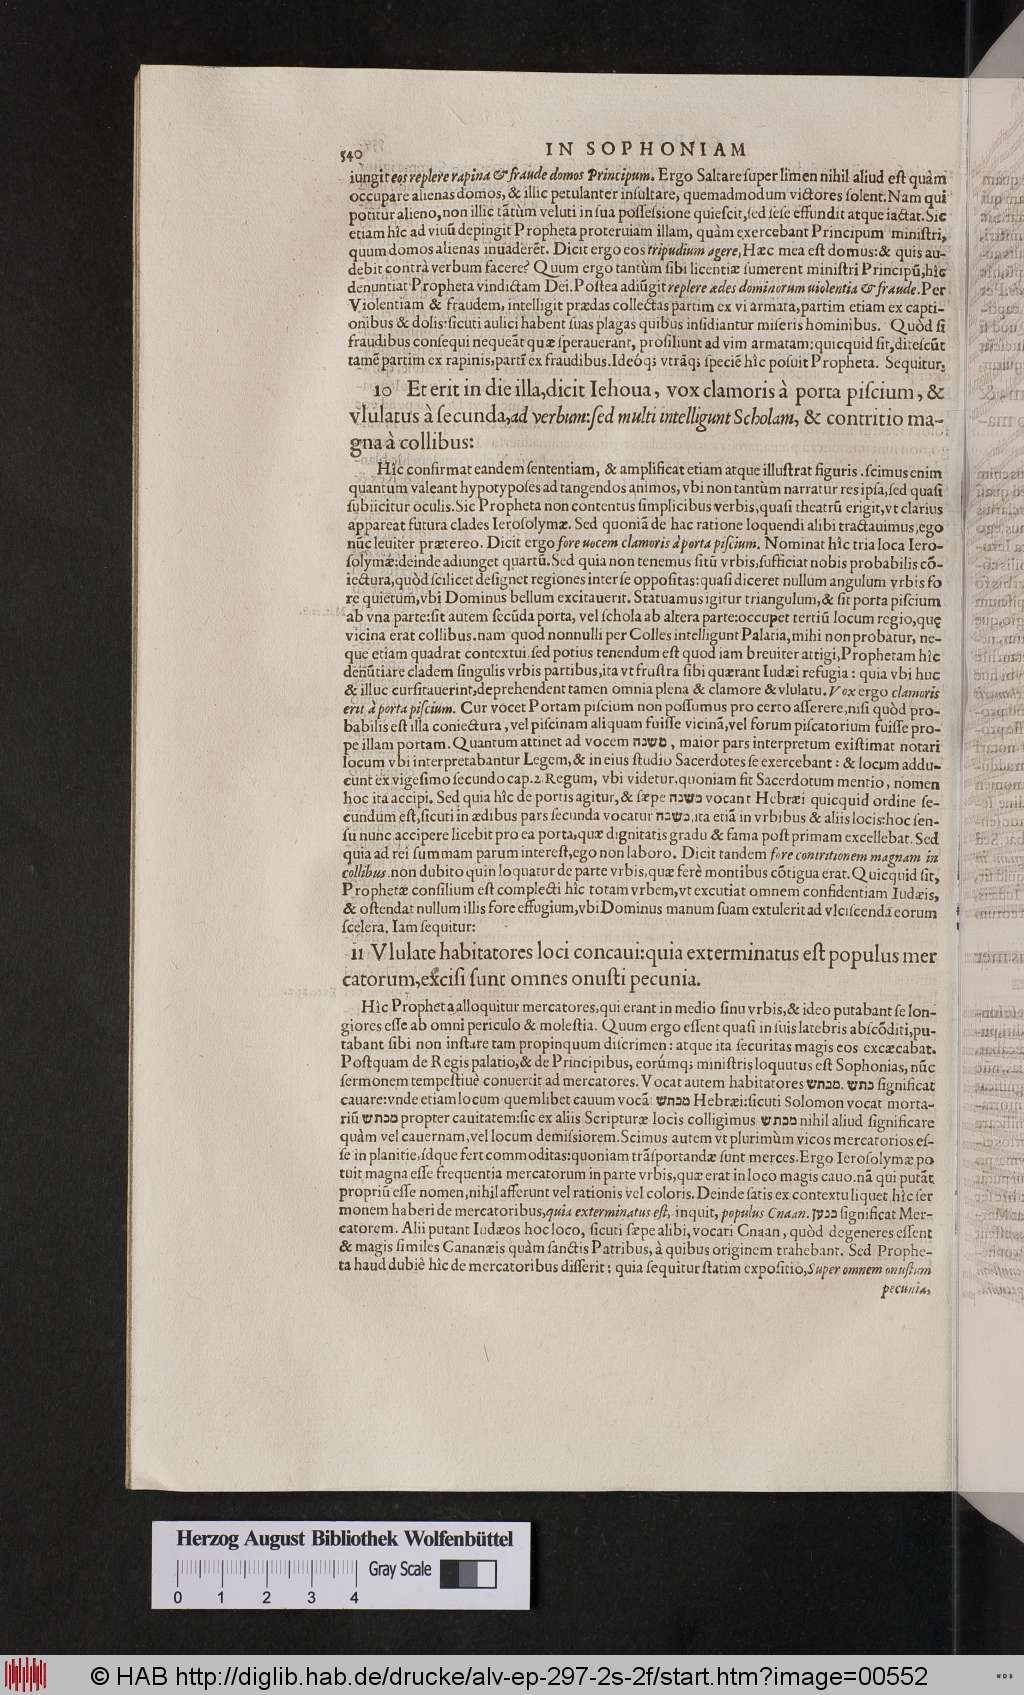 540
IN SOPHONIAM
iungit eos replere rapina & fraude domos Principum. Ergo Saltare super limen nihil aliud est quàm
occupare alienas domos, & illic petulanter insultare, quemadmodum victores solent. Nam qui
potitur alieno, non illic tãtùm veluti in sua possessione quiescit, sed sese effundit atque iactat. Sic
etiam hîc ad viuũ depingit Propheta proteruiam illam, quàm exercebant Principum ministri,
quum domos alienas inuaderẽt. Dicit ergo eos tripudium agere, Hæc mea est domus: & quis au-
debit contrà verbum facere? Quum ergo tantùm sibi licentiæ sumerent ministri Principũ, hîc
denuntiat Propheta vindictam Dei. Postea adiũgit replere ædes dominorum uiolentia & fraude. Per
Violentiam & fraudem, intelligit prædas collectas partim ex vi armata, partim etiam ex capti-
onibus & dolis: sicuti aulici habent suas plagas quibus insidiantur miseris hominibus. Quòd si
fraudibus consequi nequeãt quæ sperauerant, prosiliunt ad vim armatam: quicquid sit, ditescũt
tamẽ partim ex rapinis, partĩ ex fraudibus. Ideóq; vtrãq; speciẽ hîc posuit Propheta. Sequitur,
10 Et erit in die illa, dicit Iehoua, vox clamoris à porta piscium, &
vlulatus à secunda, ad verbum: sed multi intelligunt Scholam, & contritio ma-
gna à collibus:
Hîc confirmat eandem sententiam, & amplificat etiam atque illustrat figuris. scimus enim
quantum valeant hypotyposes ad tangendos animos, vbi non tantùm narratur res ipsa, sed quasi
subiicitur oculis. Sic Propheta non contentus simplicibus verbis, quasi theatrũ erigit, vt clarius
appareat futura clades Ierosolymæ. Sed quoniã de hac ratione loquendi alibi tractauimus, ego
nũc leuiter prætereo. Dicit ergo fore uocem clamoris à porta piscium. Nominat hîc tria loca Iero-
solymæ: deinde adiunget quartũ. Sed quia non tenemus sitũ vrbis, sufficiat nobis probabilis cõ-
iectura, quòd scilicet designet regiones inter se oppositas: quasi diceret nullum angulum vrbis fo
re quietum, vbi Dominus bellum excitauerit. Statuamus igitur triangulum, & sit porta piscium
ab vna parte: sit autem secũda porta, vel schola ab altera parte: occupet tertiũ locum regio, quę
vicina erat collibus. nam quod nonnulli per Colles intelligunt Palatia, mihi non probatur, ne-
que etiam quadrat contextui. sed potius tenendum est quod iam breuiter attigi, Prophetam hîc
denũtiare cladem singulis vrbis partibus, ita vt frustra sibi quærant Iudæi refugia: quia vbi huc
& illuc cursitauerint, deprehendent tamen omnia plena & clamore & vlulatu. Vox ergo clamoris
erit à porta piscium. Cur vocet Portam piscium non possumus pro certo asserere, nisi quòd pro-
babilis est illa coniectura, vel piscinam aliquam fuisse vicinã, vel forum piscatorium fuisse pro-
pe illam portam. Quantum attinet ad vocem משנה, maior pars interpretum existimat notari
locum vbi interpretabantur Legem, & in eius studio Sacerdotes se exercebant: & locum addu-
cunt ex vigesimo secundo cap. 2. Regum, vbi videtur. quoniam fit Sacerdotum mentio, nomen
hoc ita accipi. Sed quia hîc de portis agitur, & sæpe משנה vocant Hebræi quicquid ordine se-
cundum est, sicuti in ædibus pars secunda vocatur משנה, ita etiã in vrbibus & aliis locis: hoc sen-
su nunc accipere licebit pro ea porta, quæ dignitatis gradu & fama post primam excellebat. Sed
quia ad rei summam parum interest, ego non laboro. Dicit tandem fore contritionem magnam in
collibus. non dubito quin loquatur de parte vrbis, quæ ferè montibus cõtigua erat. Quicquid sit,
Prophetæ consilium est complecti hîc totam vrbem, vt excutiat omnem confidentiam Iudæis,
& ostendat nullum illis fore effugium, vbi Dominus manum suam extulerit ad vlciscenda eorum
scelera. Iam sequitur:
11 Vlulate habitatores loci concaui: quia exterminatus est populus mer
catorum, excisi sunt omnes onusti pecunia.
Hîc Propheta alloquitur mercatores, qui erant in medio sinu vrbis, & ideo putabant se lon-
giores esse ab omni periculo & molestia. Quum ergo essent quasi in suis latebris abscõditi, pu-
tabant sibi non instare tam propinquum discrimen: atque ita securitas magis eos excæcabat.
Postquam de Regis palatio, & de Principibus, eorúmq; ministris loquutus est Sophonias, nũc
sermonem tempestiuè conuertit ad mercatores. Vocat autem habitatores מכתש. כתש significat
cauare: vnde etiam locum quemlibet cauum vocã: מכתש Hebræi: sicuti Solomon vocat morta-
riũ מכתש propter cauitatem: sic ex aliis Scripturæ locis colligimus מכתש nihil aliud significare
quàm vel cauernam, vel locum demissiorem. Scimus autem vt plurimùm vicos mercatorios es-
se in planitie, idque fert commoditas: quoniam trãsportandæ sunt merces. Ergo Ierosolymæ po
tuit magna esse frequentia mercatorum in parte vrbis, quæ erat in loco magis cauo. nã qui putãt
propriũ esse nomen, nihil afferunt vel rationis vel coloris. Deinde satis ex contextu liquet hîc ser
monem haberi de mercatoribus, quia exterminatus est, inquit, populus Cnaan. כנען significat Mer-
catorem. Alii putant Iudæos hoc loco, sicuti sæpe alibi, vocari Cnaan, quòd degeneres essent
& magis similes Cananæis quàm sanctis Patribus, à quibus originem trahebant. Sed Prophe-
ta haud dubiè hîc de mercatoribus disserit: quia sequitur statim expositio, Super omnem onustum
pecunia,
Herzog August Bibliothek Wolfenbüttel
Gray Scale
0 1 2 3 4
© HAB http://diglib.hab.de/drucke/alv-ep-297-2s-2f/start.htm?image=00552